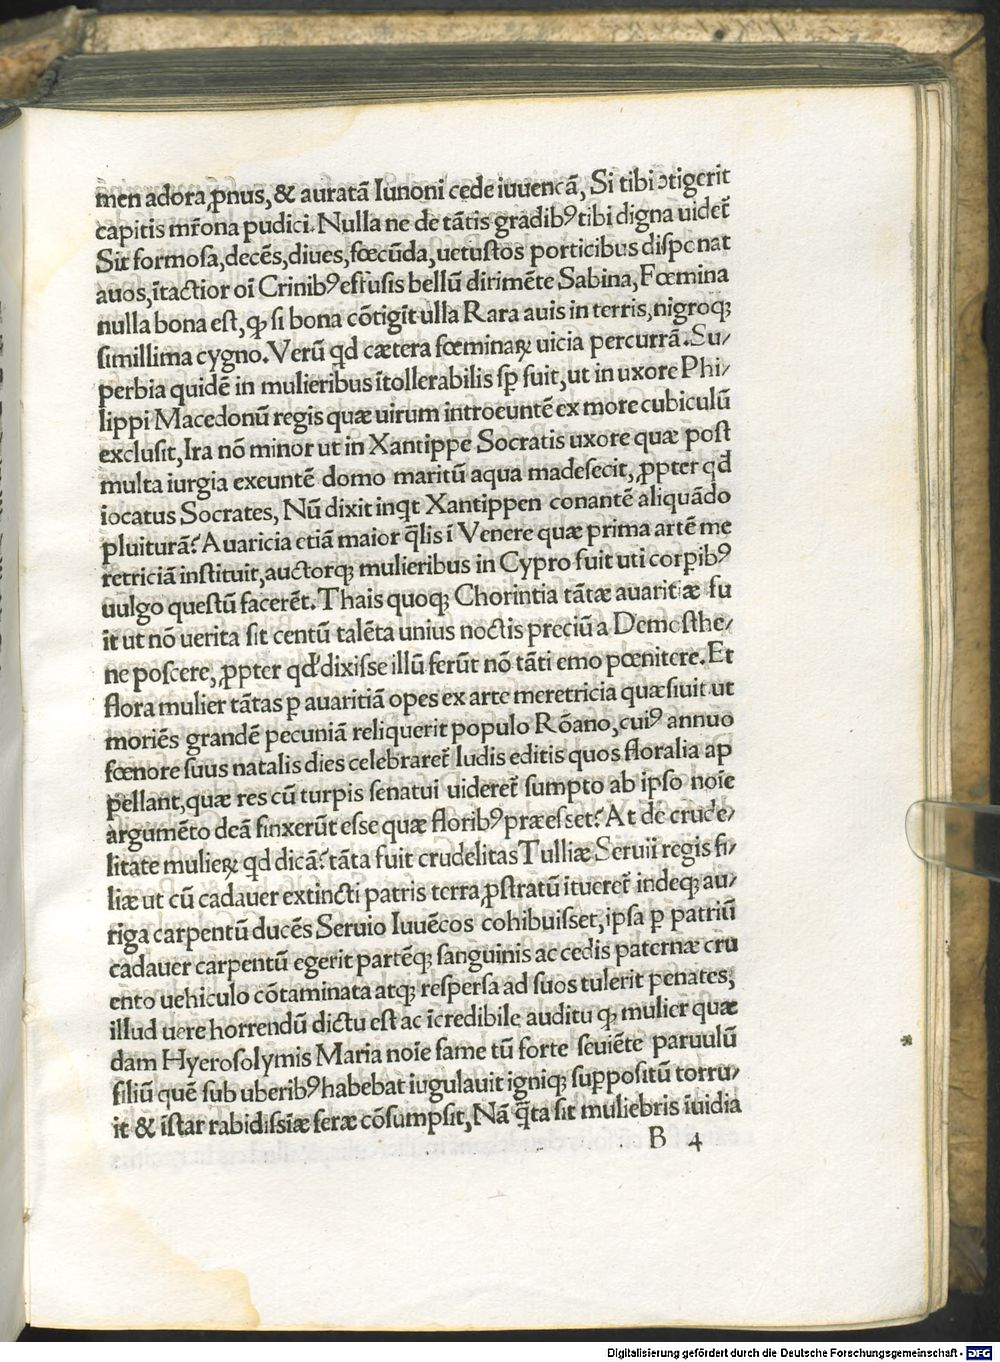 men adora ꝓnus, & auratā Iunoni cede iuuencā, Si tibi ↄtigerit
capitis mr̄ona pudici. Nulla ne de tātis gradibꝰ tibi digna uidet᷑
Sit formosa, decēs, diues, fœcūda, uetustos porticibus dispo nat
auos, ītactior oī Crinibꝰ effusis bellū dirimēte Sabina, Fœmina
nulla bona est, ꝙ si bona cōtigīt ulla Rara auis in terris, nigroqꝫ
simillima cygno. Verū qd cætera fœminaꝝ uicia percurrā. Su/
perbia quidē in mulieribus ītollerabilis sꝑ fuit, ut in uxore Phi/
lippi Macedonū regis quæ uirum introeuntē ex more cubiculū
exclusit, Ira nō minor ut in Xantippe Socratis uxore quæ post
multa iurgia exeuntē domo maritū aqua madefecit, ꝓpter qd̄
iocatus Socrates, Nū dixit inqt Xantippen conantē aliquādo
pluiturā? Auaricia etiā maior q̄lis ī Venere quæ prima artē me
retriciā instituit, auctorqꝫ mulieribus in Cypro fuit uti corpibꝰ
uulgo questū facerēt. Thais quoqꝫ Chorintia tātæ auaritiæ fu
it ut nō uerita sit centū talēta unius noctis preciū a Demosthe/
ne poscere, ꝓpter qd dixisse illū ferūt nō tāti emo pœnitere. Et
flora mulier tātas ꝑ auaritiā opes ex arte meretricia quæsiuit ut
moriēs grandē pecuniā reliquerit populo Rōano, cuiꝰ annuo
fœnore suus natalis dies celebraret᷑ ludis editis quos floralia ap
pellant, quæ res cū turpis senatui uideret᷑ sumpto ab ipso noīe
argumēto deā finxerūt esse quæ floribꝰ præesset? At de crude/
litate mulieꝝ qd dicā? tāta fuit crudelitas Tulliæ Seruii regis fi/
liæ ut cū cadauer extincti patris terra ꝓstratū itueret᷑ indeqꝫ au/
riga carpentū ducēs Seruio Iuuēcos cohibuisset, ipsa ꝑ patriū
cadauer carpentū egerit partēqꝫ sanguinis ac cedis paternæ cru
ento uehiculo cōtaminata atqꝫ respersa ad suos tulerit penates,
illud uere horrendū dictu est ac īcredibile auditu ꝙ mulier quæ
dam Hyerosolymis Maria noīe fame tū forte seuiēte paruulū
filiū quē sub uberibꝰ habebat iugulauit igniqꝫ suppositū torru/
it & īstar rabidissīæ feræ cōsumpsit, Nā q̄ta sit muliebris īuidia
B 4
Digitalisierung gefördert durch die Deutsche Forschungsgemeinschaft - DFG